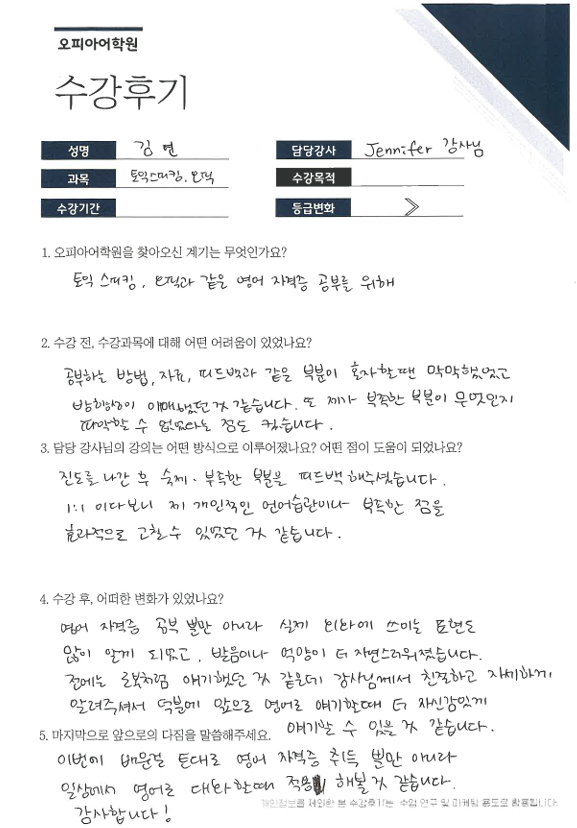 오피아어학원
수강후기
성명 김 면 담당강사 Jennifer 강사님
과목 토익스피킹, 오픽 수강목적
수강기간 등급변화
1. 오피아어학원을 찾아오신 계기는 무엇인가요?
토익 스피킹, 오픽과 같은 영어 자격증 공부를 위해
2. 수강 전, 수강과목에 대해 어떤 어려움이 있었나요?
공부하는 방법, 자료, 피드백과 같은 부분이 혼자할 땐 막막했었고
방향성이 애매했던 것 같습니다. 또 제가 부족한 부분이 무엇인지
파악할 수 없었다는 점도 컸습니다.
3. 담당 강사님의 강의는 어떤 방식으로 이루어졌나요? 어떤 점이 도움이 되었나요?
진도를 나간 후 숙제 · 부족한 부분을 피드백 해주셨습니다.
1:1 이다보니 제 개인적인 언어습관이나 부족한 점을
효과적으로 고칠 수 있었던 것 같습니다.
4. 수강 후, 어떠한 변화가 있었나요?
영어 자격증 공부 뿐만 아니라 실제 회화에 쓰이는 표현도
많이 알게 되었고, 발음이나 억양이 더 자연스러워졌습니다.
전에는 로봇처럼 얘기했던 것 같은데 강사님께서 친절하고 자세하게
알려주셔서 덕분에 앞으로 영어로 얘기할때 더 자신감있게
얘기할 수 있을 것 같습니다.
5. 마지막으로 앞으로의 다짐을 말씀해주세요.
이번에 배운걸 토대로 영어 자격증 취득 뿐만 아니라
일상에서 영어로 대화할때 적용 해볼 것 같습니다.
감사합니다!
개인정보를 제외한 본 수강후기는 수업 연구 및 마케팅 용도로 활용됩니다.